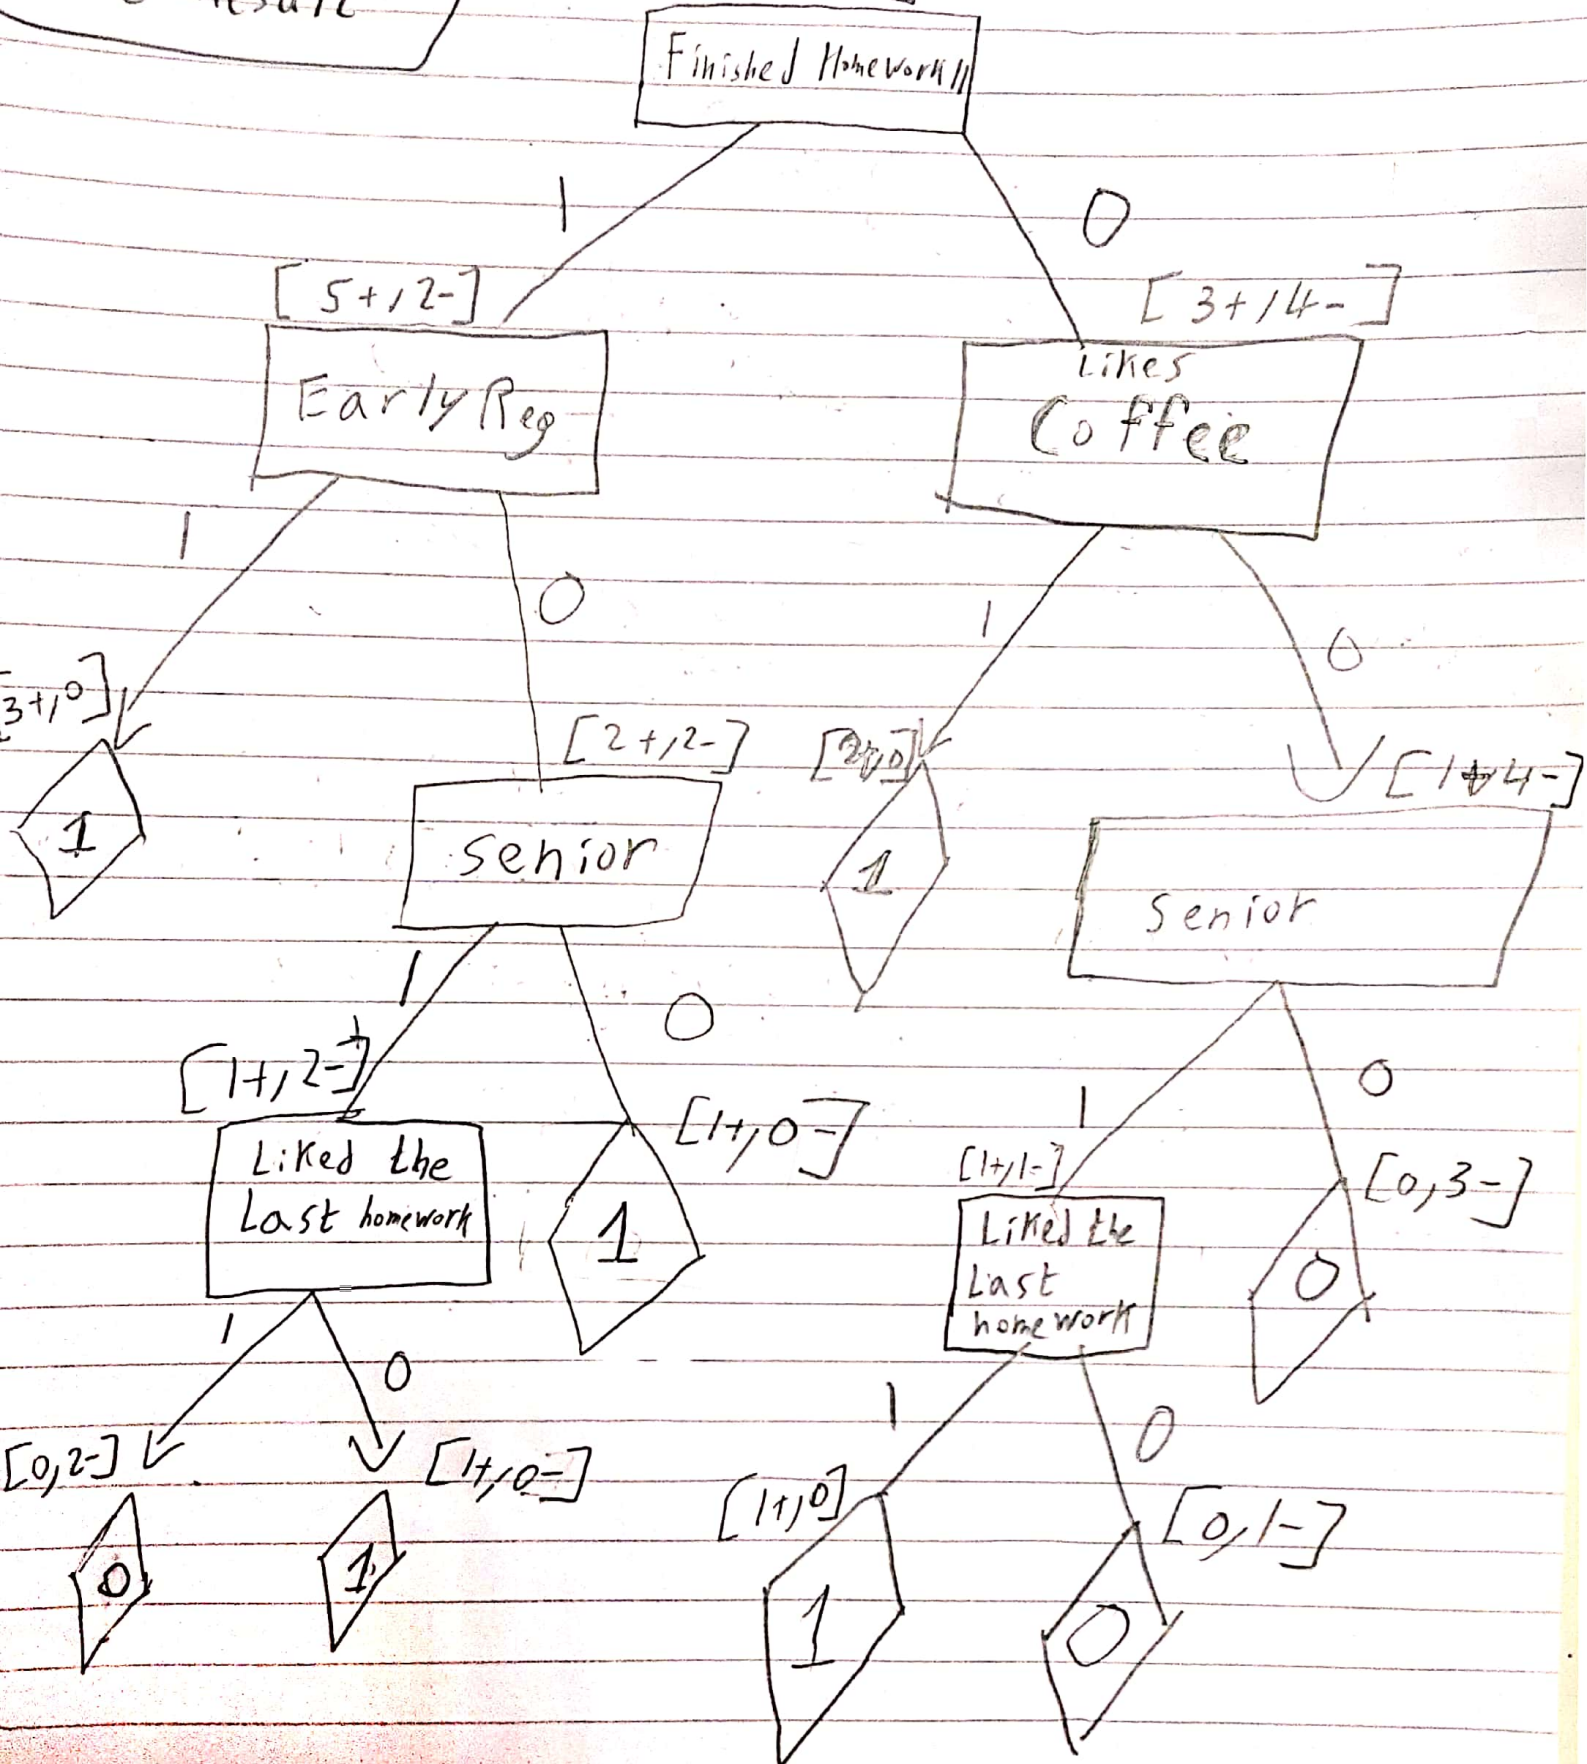 Finished Homework 11
1
0
[5+,2-]
[3+,4-]
Early Reg
Likes
Coffee
1
0
1
0
3+,0]
[2+,2-]
[1+,4-]
1
senior
1
Senior
1
0
1
0
[1+,2-]
[1+,0-]
[1+,1-]
[0,3-]
Liked the
Last homework
1
Liked the
Last
homework
0
1
0
1
0
[0,2-]
[1+,0-]
[1+,0]
[0,1-]
0
1
1
0